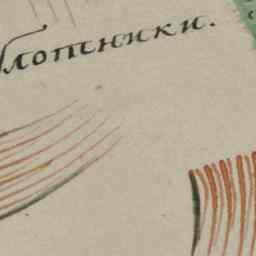 блотники.